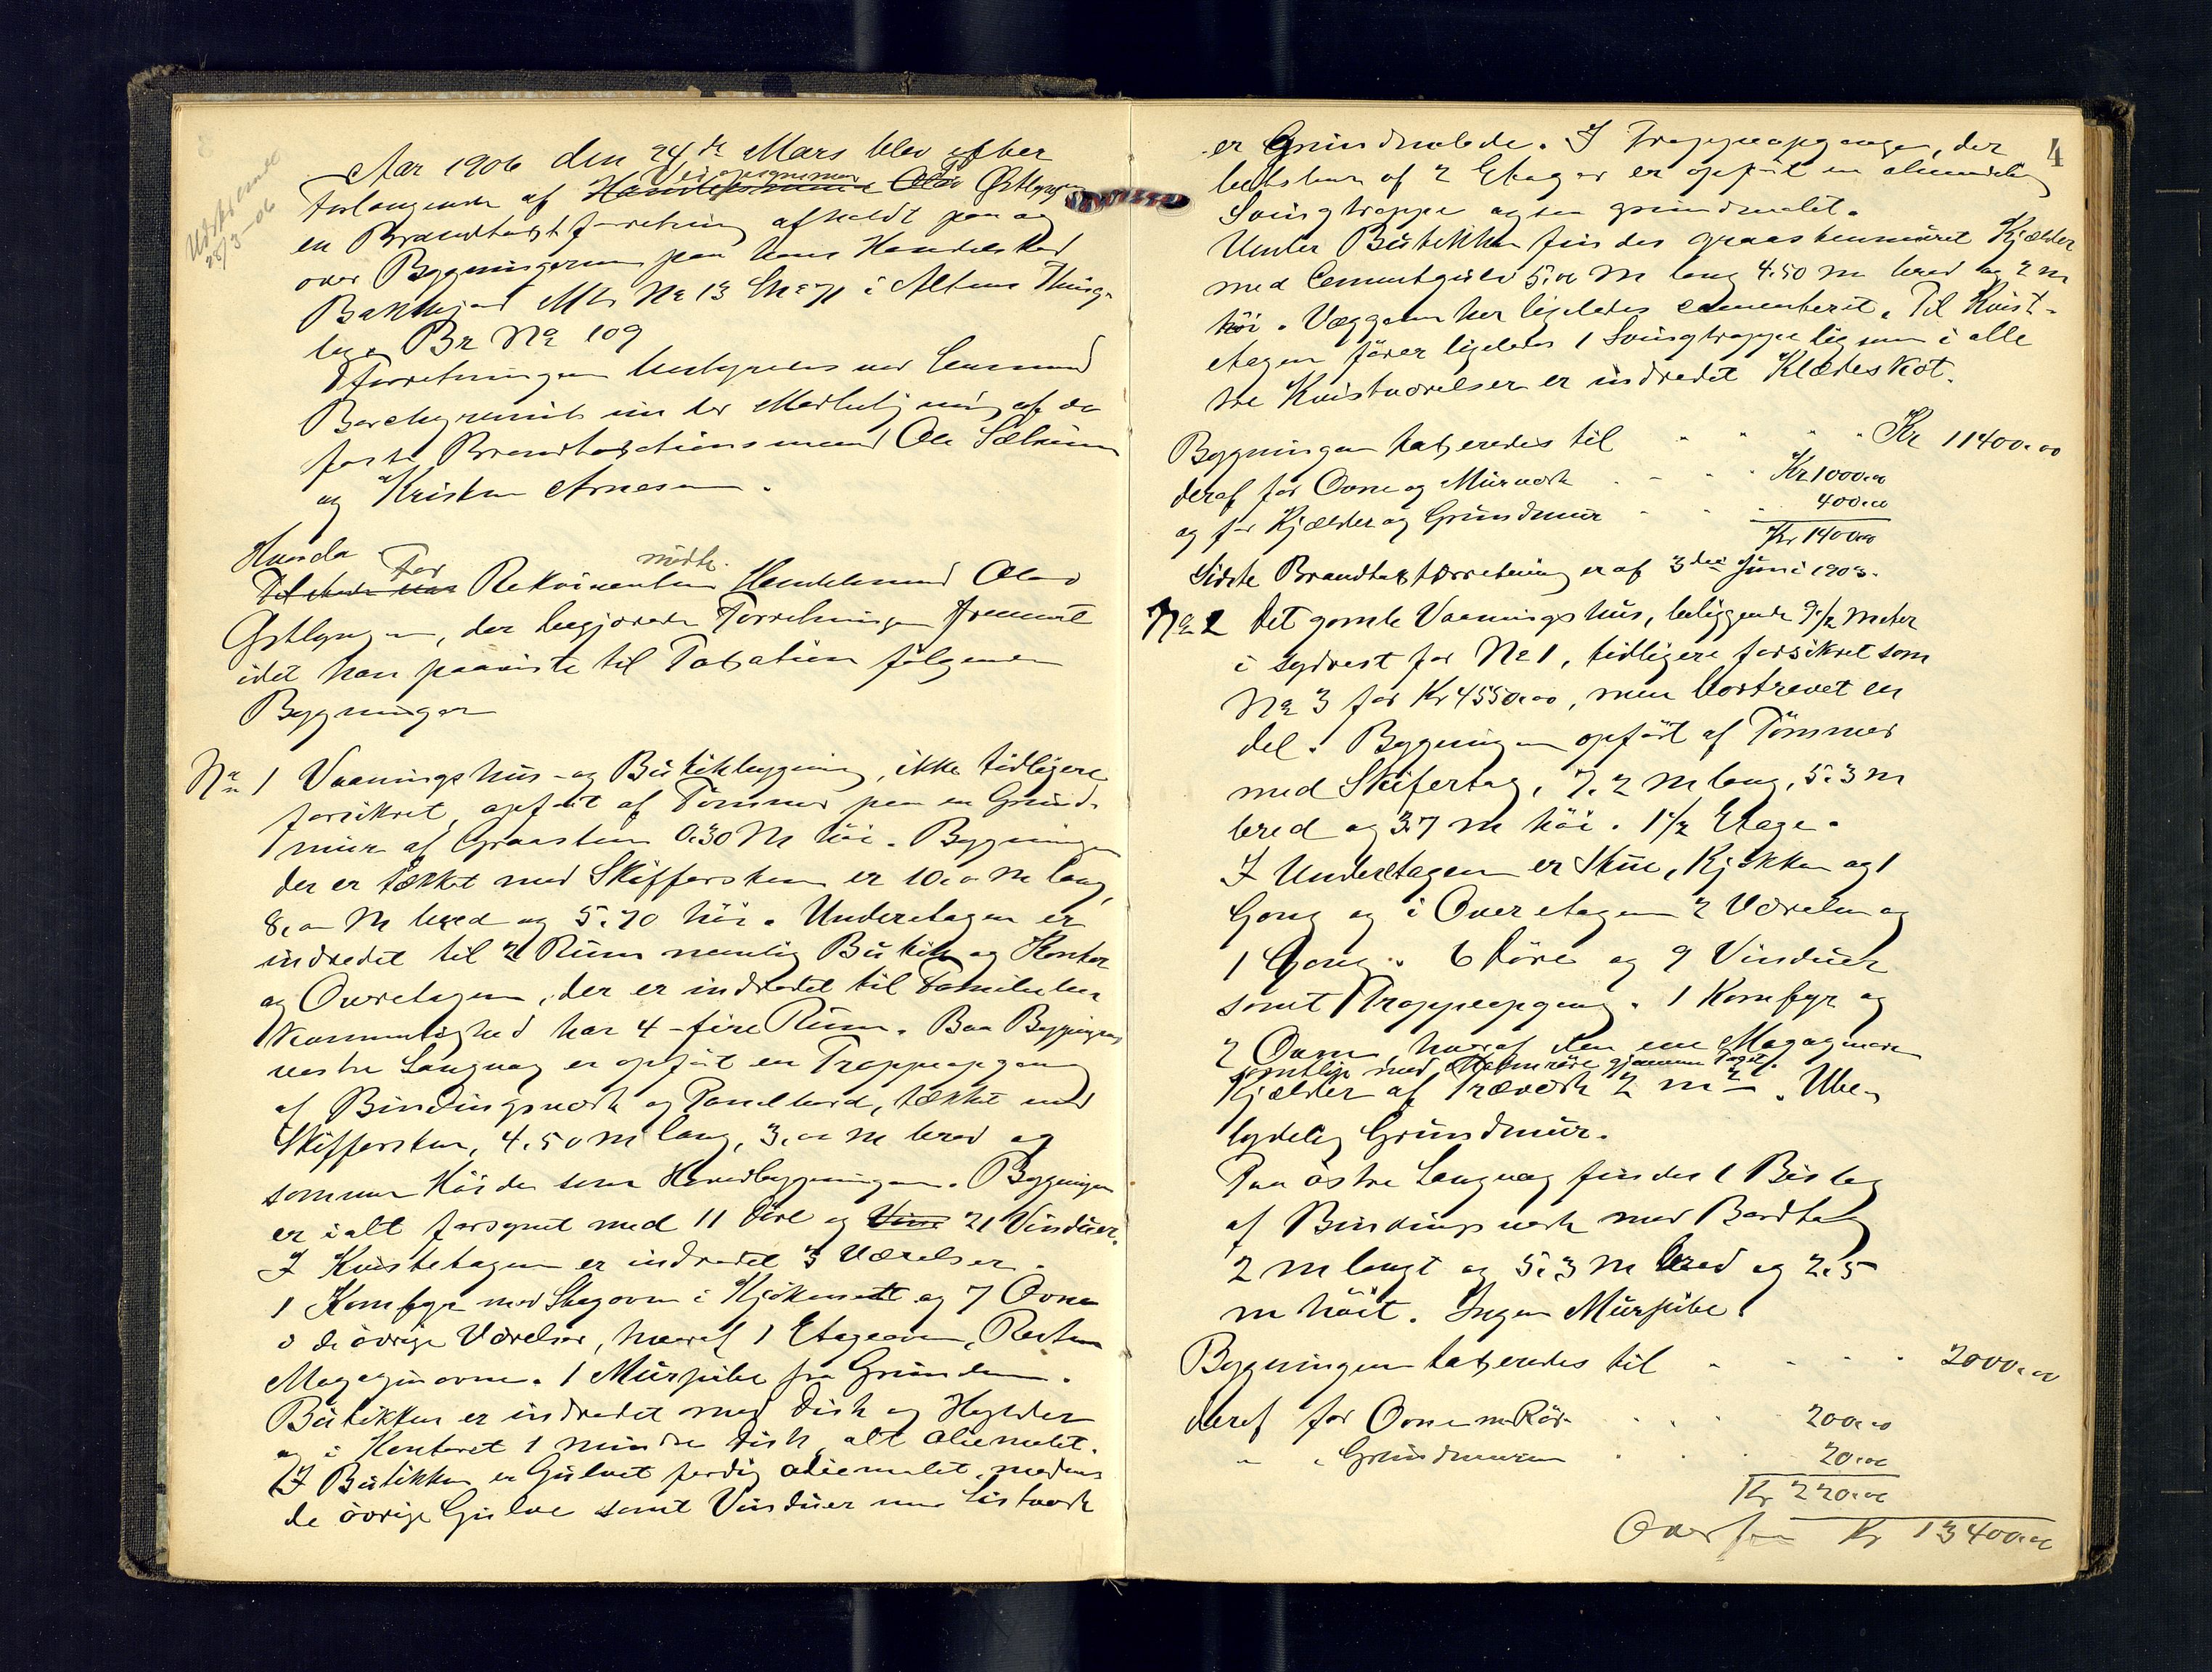 Udskr sendt
28/3-06
Aar 1906 den 24de Mars blev efter
Forlangende af Handelsmand Olav Østlyngen
en Brandtaxtforretning afholdt paa og
over Bygningerne paa hans Handelsted
Bakkejord Mtr No 13 Lno 71 i Altens Thing-
lag. Br No 109
Forretningen bestyredes ved Lensmand
Borchgrevink under Medbetjening af de
faste Brandtaxtionsmænd Ole
og Kristen Arnesen.
Hvorda
Til stede var For Rekvirenten mødte Handelsmand Olav
Østlyngen, der begjærede Forretningen fremmet
idet han paaviste til Taxation følgende
Bygninger
No 1 Vaaningshus- og Butikbygning, ikke tidligere
forsikret, opført af Tømmer paa en Grund-
mur af Graasten 0.30 M høi. Bygningen
der er tækket med Skiffersten er 10.00 m lang,
8.00 M bred og 5.70 høi. Underetagen er
indredet til 2 Rum nemlig Butik og Kontor
og Overetagen, der er indredet til Familiebe-
kvemmelighed har 4 - fire Rum. Paa Bygningens
vestre Langvæg er opført en Trappeopgang
af Bindingsverk og Panelbord, tækket med
Skiffersten, 4.50 m lang, 3.00 m bred og
samme Høide som Hovedbygningen. Bygningen
er ialt forsynet med 11 Døre og Vind 21 Vinduer.
I Kvistetagen er indredet 3 Værelser.
1 Komfyr med Stegovn i Kjøkenet og 7 Ovne
i de øvrige Værelser, hvoraf 1 Etageovn, Resten
Magazinovne. 1 Murpibe fra Grunden.
Butikken er indredet med Disk og Hylder
og i Kontoret 1 mindre Disk, alt oliemalet.
I Butikken er Gulvet færdig oliemalet, medens
de øvrige Gulve samt Vinduer med Listverk
4
er Grundmalede. I Trappeopgangen, der
bestaar af 2 Etager er opført en almindelig
Svingtrappe ogsaa grundmalet.
Under Butikken findes graastensmuret Kjælder
med Cementgulv 5.00 M lang 4.50 m bred og 2 m
høi. Væggene her ligeledes cementeret. Til Kvist-
etagen fører ligeledes 1 Svingtrappe ligesom i alle
tre Kvistværelser er indredet Klædeskot.
Bygningen taxeredes til Kr 11400.00
deraf for Ovne og Murverk Kr 1000.00
og for Kjælder og Grundmur 400.00
Kr 1400.00
Sidste Brandtaxtforretning er af 3die Juni 1903.
No 2 Det gamle Vaaningshus, beliggende 9 1/2 Meter
i sydvest for No 1, tidligere forsikret som
No 3 for Kr 4550.00, men bortrevet en
del. Bygningen opført af Tømmer
med Skifertag, 7.2 m lang, 5.3 m
bred og 3.7 m høi. 1 1/2 Etage.
I Underetagen er Stue, Kjøkken og 1
Gang og i Overetagen 2 Værelser og
1 Gang. 6 Døre og 9 Vinduer
samt Trappeopgang. 1 Komfyr og
2 Ovne, hvoraf den ene Magazinovn
samtlige med Malmrøre gjennem Taget.
Kjælder af Træverk 2 m2. Ube-
tydelig Grundmur.
Paa østre Langvæg findes 1 Bislag
af Bindingsverk med Bordtag
2 m langt og 5.3 m bred og 2.5
m høit. Ingen Murpibe.
Bygningen taxeredes til 2000.00
deraf for Ovne m Rør 200.00
" " Grundmuren 20.00
Kr 220.00
Overføres Kr 13400.00